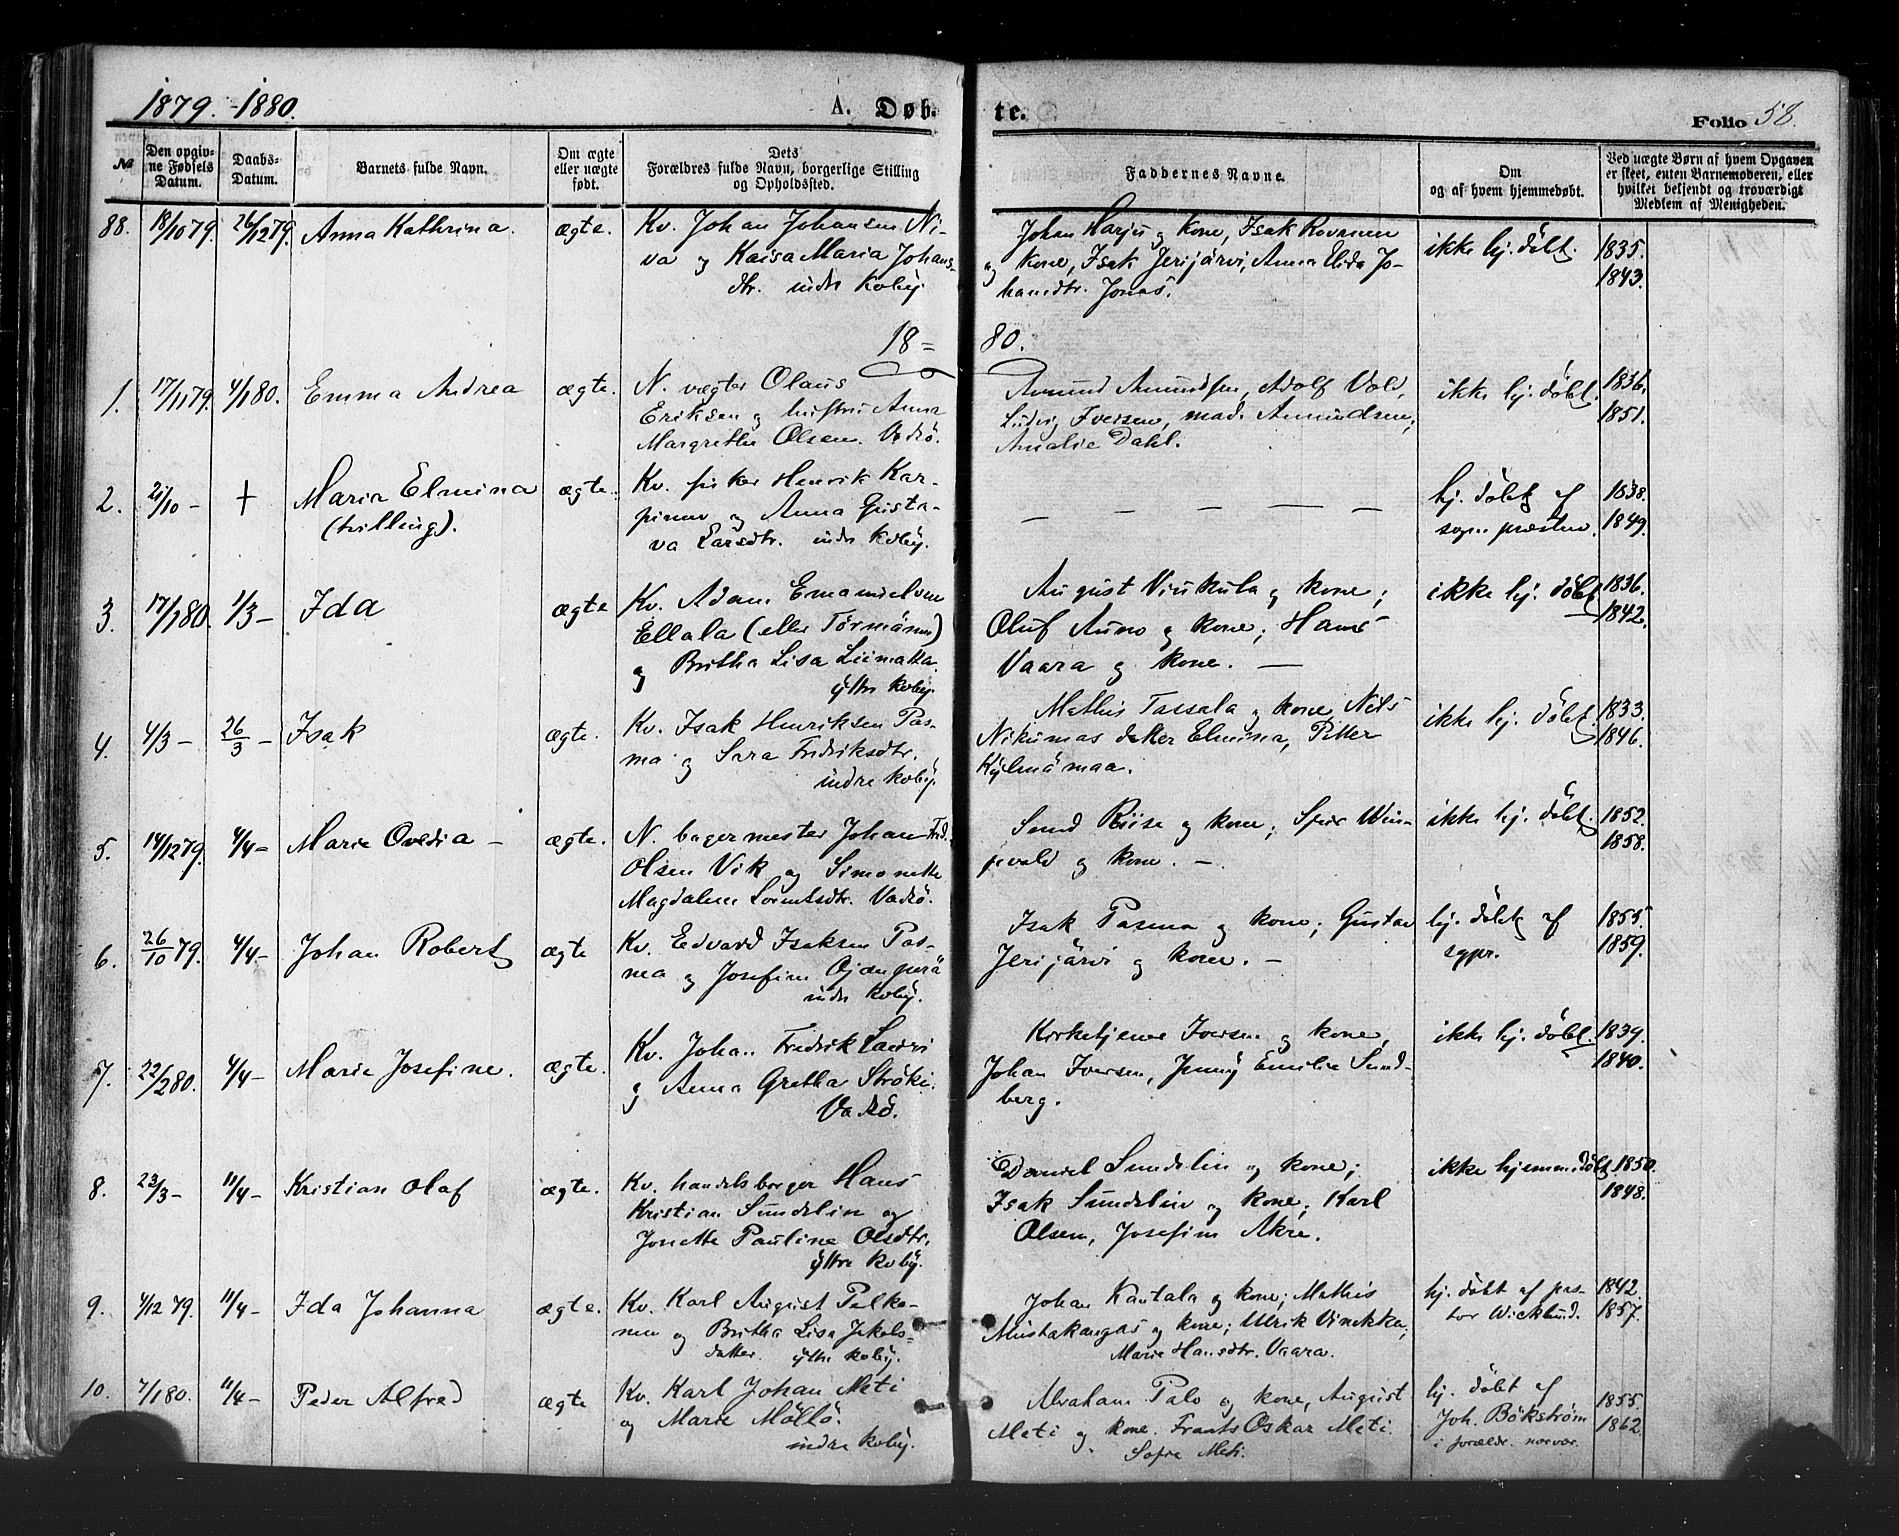 1879.-1880. A. Døbte. Folio 58.
№
Den opgivne Fødsels Datum.
Daabs-Datum.
Barnets fulde Navn.
Om ægte eller uægte født.
Dets Forældres fulde Navn, borgerlige Stilling og Opholdssted.
Faddernes Navne.
Om og af hvem hjemmedøbt.
Ved uægte Børn af hvem Opgaven er skeet, enten Barnemoderen, eller hvilket bekjendt og troværdigt Medlem af Menigheden.
88. 18/10 79. 26/12 79. Anna Kathrina. ægte. Kv. Johan Johansen Ni-
va og Kaisa Maria Johans-
dtr. indre Kvby.
Johan Harju og kone, Isak Rovanen
og kone, Isak Jerijärvi, Anna Ulida Jo-
hansdtr. Jonas.
ikke hj. døbt.
1835.
1843.
18= 80.
1. 17/11 79. 4/1 80. Emma Andrea ægte. N. vægter Olaus
Eriksen og hustru Anna
Margrethe Olsen. Vadsö.
Amund Amundsen, Adolf Dal,
Ludvig Iversen, mad. Amundsen,
Amalie Dahl.
ikke hj. döbt.
1836.
1851.
2. 21/10 - + Maria Elmina ægte. Kv. fisker Henrik Kar-
(trilling). pinen og Anna Gusta-
va Larsdtr. indre Kvby.
— — — — —
hj. döbt af
sogne præsten.
1838.
1849.
3. 17/1 80. 1/3 - Ida ægte Kv. Adam Emanuelsen
Ellala (eller Törmänen)
og Britha Lisa Liimatta.
ÿttre kvby.
August Viukula og kone;
Oluf Auno og kone; Hans
Vaara og kone. —
ikke hj. döbt
1836.
1842.
4. 4/3 - 26/3 - Isak ægte. Kv. Isak Henriksen Pas-
ma og Sara Fredriksdtr.
indre kvby.
Mathis Tassala og kone, Nils
Nikumas datter Elmina, Petter
Kylmämaa.
ikke hj. döbt.
1833.
1846.
5. 14/12 79. 4/4 - Marie Ovedia - ægte. N. bagermester Johan Fred.
Olsen Vik og Simonette
Magdalene Lorentsdtr. Vadsö.
Sund Riise og kone;
og kone. —
ikke hj. döbt.
1852.
1858.
6. 26/10 79. 4/4 - Johan Robert ægte Kv. Edvard Isaksen Pas-
ma og Josefine Ojanperä
indre kvby.
Isak Pasma og kone; Gustav
Jerijärvi og kone. —
hj. döbt af
sgpr.
1855.
1859.
7. 22/2 80. 4/4 - Marie Josefine. ægte. Kv. Johan Fredrik Lauri
og Anna Gretha Ströki.
Vadsö.
Kirketjener Iversen og kone,
Johan Iversen, Jenny Emilie Sund-
berg.
ikke hj. döbt.
1839.
1840.
8. 23/3 - 11/4 - Kristian Olaf ægte. Kv. handelsborger Hans
Kristian Sundelin og
Jonette Pauline Olsdtr.
ÿttre kvby.
Daniel Sundelin og kone;
Isak Sundelin og kone; Karl
Olsen, Josefine Akre.
ikke hjemmedöbt
1850.
1848.
9. 4/12 79. 11/4 - Ida Johanna ægte. Kv. Karl August Pelko-
nen og Britha Lisa Jakobs-
datter. ÿttre kvby.
Johan Kantala og kone; Mathis
Mustakangas og kone; Ulrik Vinikka;
Marie Hansdtr. Vaara.
hj. döbt af pas-
tor Wicklund.
1842.
1857.
10. 7/1 80. 11/4 - Peder Alfred ægte Kv. Karl Johan Meti
og Marie Möllö.
indre kvby.
Abraham Palo og kone, August
Meti og kone. Frants Oskar Meti.
Sofie Meti.
hj. döbt af
Joh. Bökström
i forældr. nærvær.
1855.
1862.